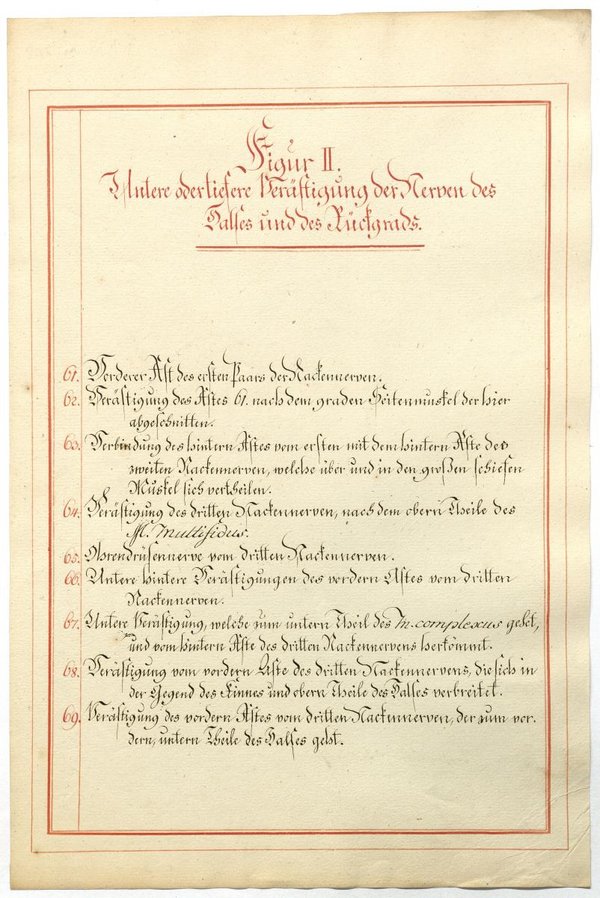 Figur II.
Untere oder tiefere Verästigung der Nerven des
Halses und des Rückgrads.
61. Vorderer Ast des ersten Paars der Nackennerven.
62. Verästigung des Astes 61. nach dem graden Seitenmuskel der hier
abgeschnitten.
63. Verbindung des hintern Astes vom ersten mit dem hintern Aste des
zweiten Nackennerven, welche über und in den großen schiefen
Muskel sich vertheilen.
64. Verästigung des dritten Nackennerven, nach dem obern Theile des
M. multifidus.
65. Ohrendrüsennerve vom dritten Nackennerven.
66. Untere hintere Verästigungen des vordern Astes vom dritten
Nackennerven.
67. Untere Verästigung, welche zum untern Theil des m. complexus geht,
und vom hintern Aste des dritten Nackennervens herkömmt.
68. Verästigung vom vordern Aste des dritten Nackennervens, die sich in
der Gegend des Kinnes und obern Theile des Halses verbreitet.
69. Verästigung des vordern Astes vom dritten Nackennerven, der zum vor-
dern, untern Theile des Halses geht.